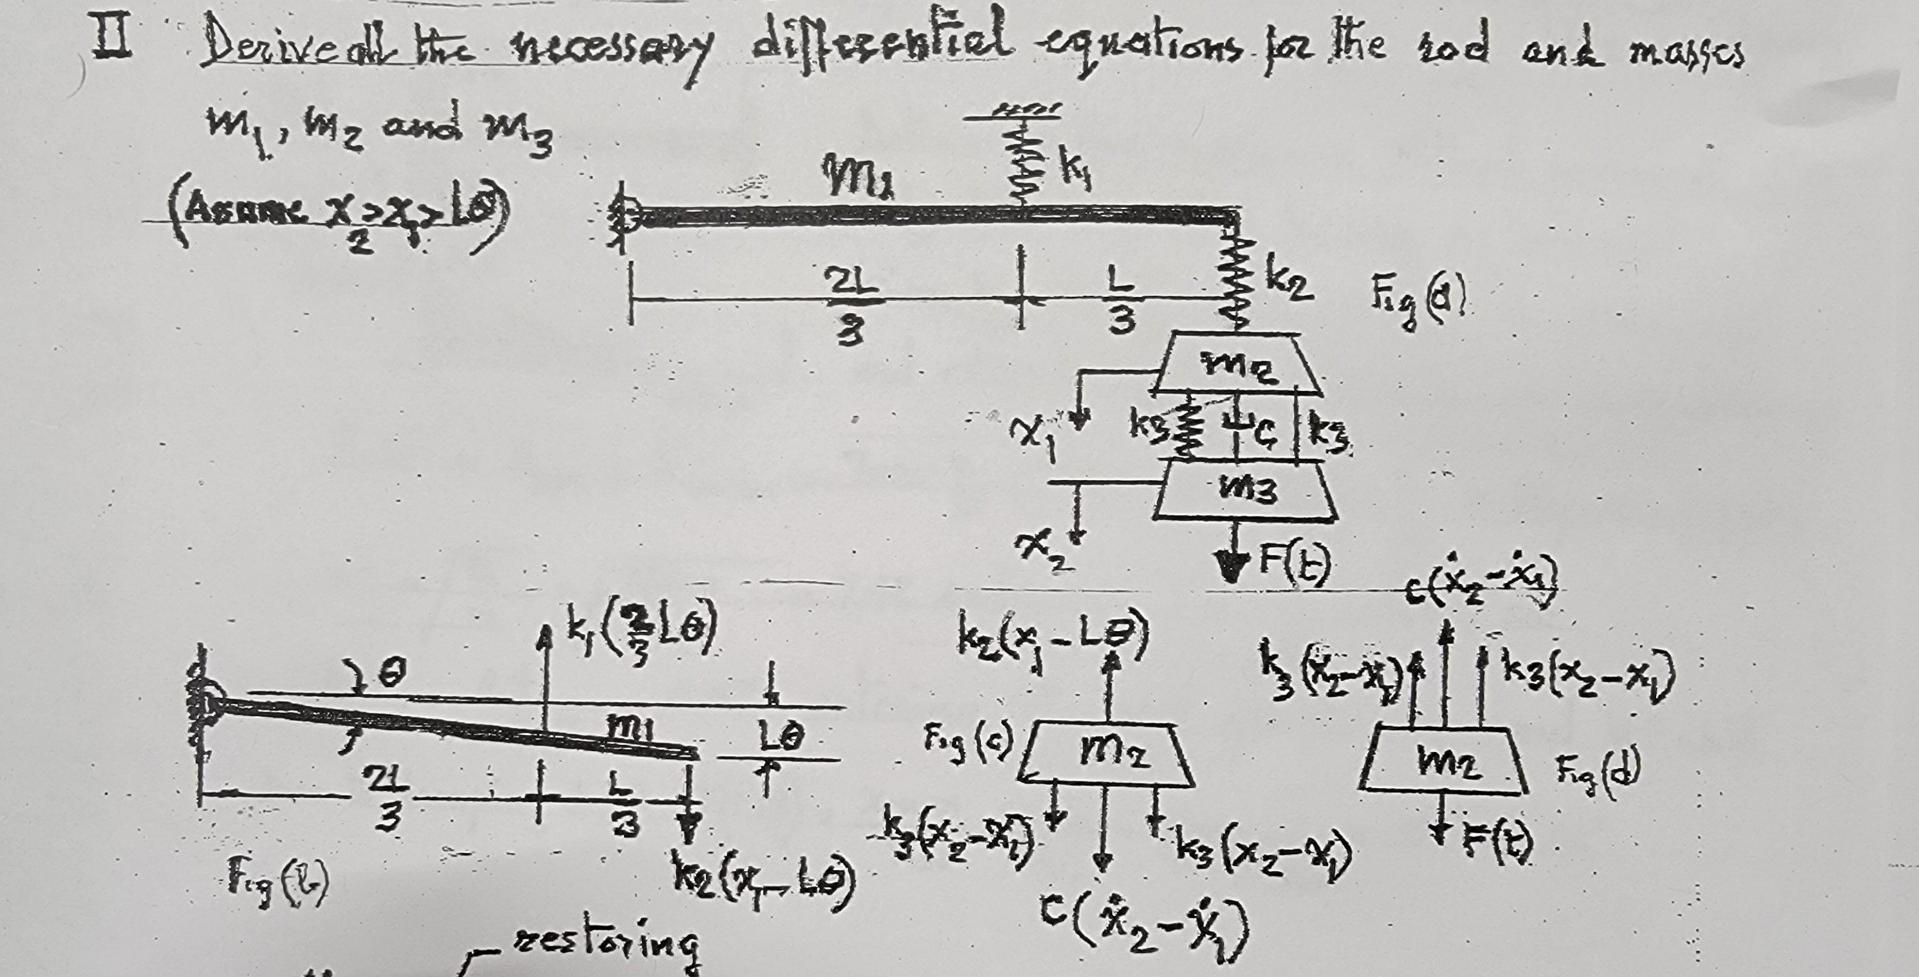 II Derive all the necessary differential equations for the rod and masses
m₁, m₂ and m₃
(Assume x₂>x₁>Lθ)
m₁
k₁
2L/3
L/3
k₂
Fig(a)
m₂
x₁
k₃
c
k₃
m₃
x₂
F(t)
θ
k₁(2/3 Lθ)
m₁
Lθ
2L/3
L/3
k₂(x₁-Lθ)
Fig(b)
k₂(x₁-Lθ)
Fig(c)
m₂
k₃(x₂-x₁)
k₃(x₂-x₁)
c(ẋ₂-ẋ₁)
c(ẋ₂-ẋ₁)
k₃(x₂-x₁)
k₃(x₂-x₁)
m₂
Fig(d)
F(t)
restoring